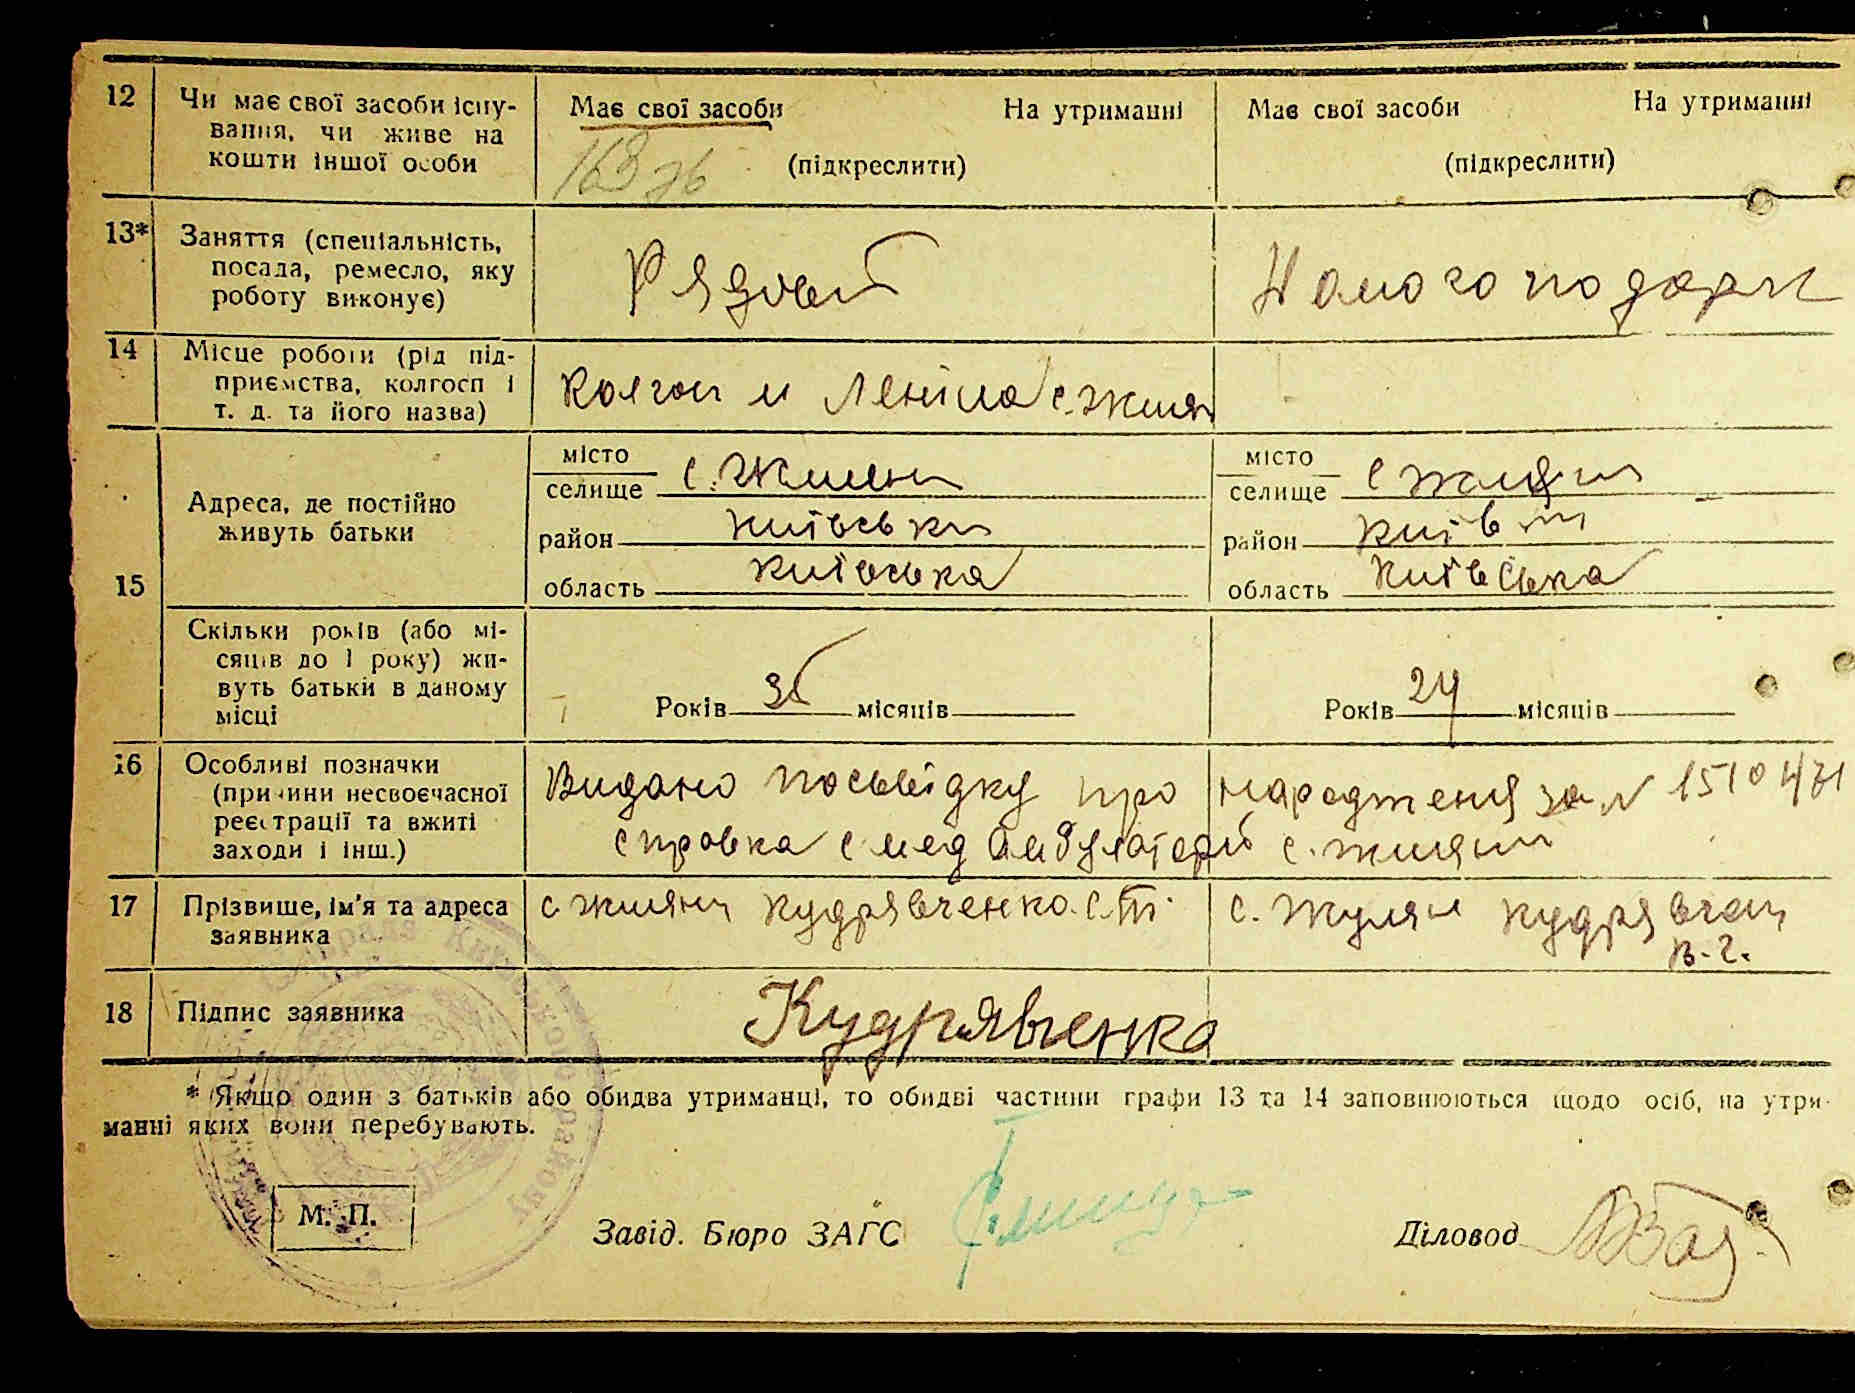 12 Чи має свої засоби існу-
вання, чи живе на
кошти іншої особи
Має свої засоби На утриманні
(підкреслити)
Має свої засоби На утриманні
(підкреслити)
13* Заняття (спеціальність,
посада, ремесло, яку
роботу виконує)
Рядовой
Домогоподарк
14 Місце роботи (рід під-
приємства, колгосп і
т. д. та його назва)
Колгосп и Леніна с. Жиляни
15 Адреса, де постійно
живуть батьки
місто
селище с. Жиляни
район Київськи
область Київська
місто
селище с Жиляни
район Київськ
область Київська
Скільки років (або мі-
сяців до 1 року) жи-
вуть батьки в даному
місці
Років 36 місяців
Років 24 місяців
16 Особливі позначки
(причини несвоєчасної
реєстрації та вжиті
заходи і інш.)
Видано посьвідку про народженя за №
справка с мед амбулаторії с. Жиляни
17 Прізвище, ім'я та адреса
заявника
с. Жиляни Кудрявченко. С.
с. Жулян Кудрявчен
В. Г.
18 Підпис заявника
Кудрявченко
* Якщо один з батьків або обидва утриманці, то обидві частини графи 13 та 14 заповнюються щодо осіб, на утри-
манні яких вони перебувають.
М. П.
Завід. Бюро ЗАГС
Діловод